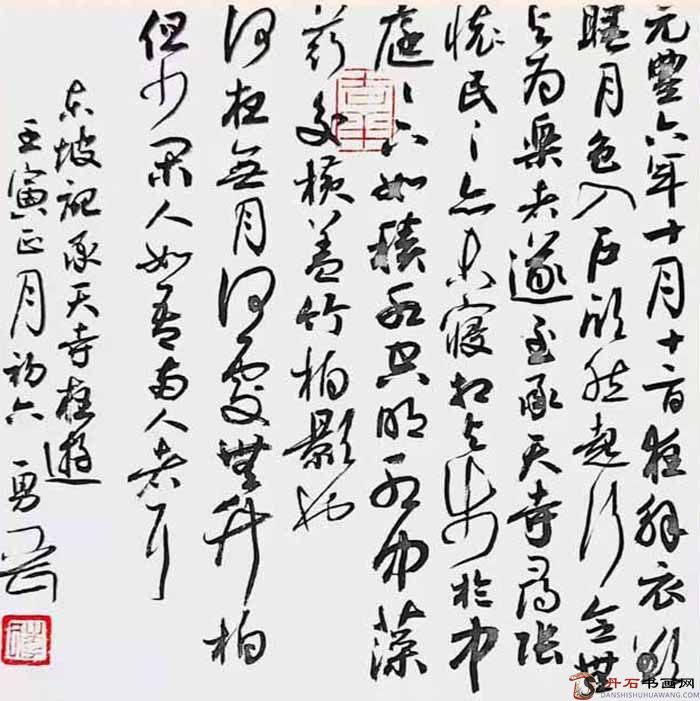 元豐六年十月十二日夜解衣欲
睡月色入户欣然起行念無
与为樂者遂至承天寺尋張
懷民〻亦未寝相与步於中
庭〻下如積水空明水中藻
荇交横盖竹柏影也
何夜無月何處無竹柏
但少閑人如吾两人者耳
东坡記承天寺夜遊
壬寅正月初六 勇
丹石书画网
DANSHISHUHUAWANG.COM